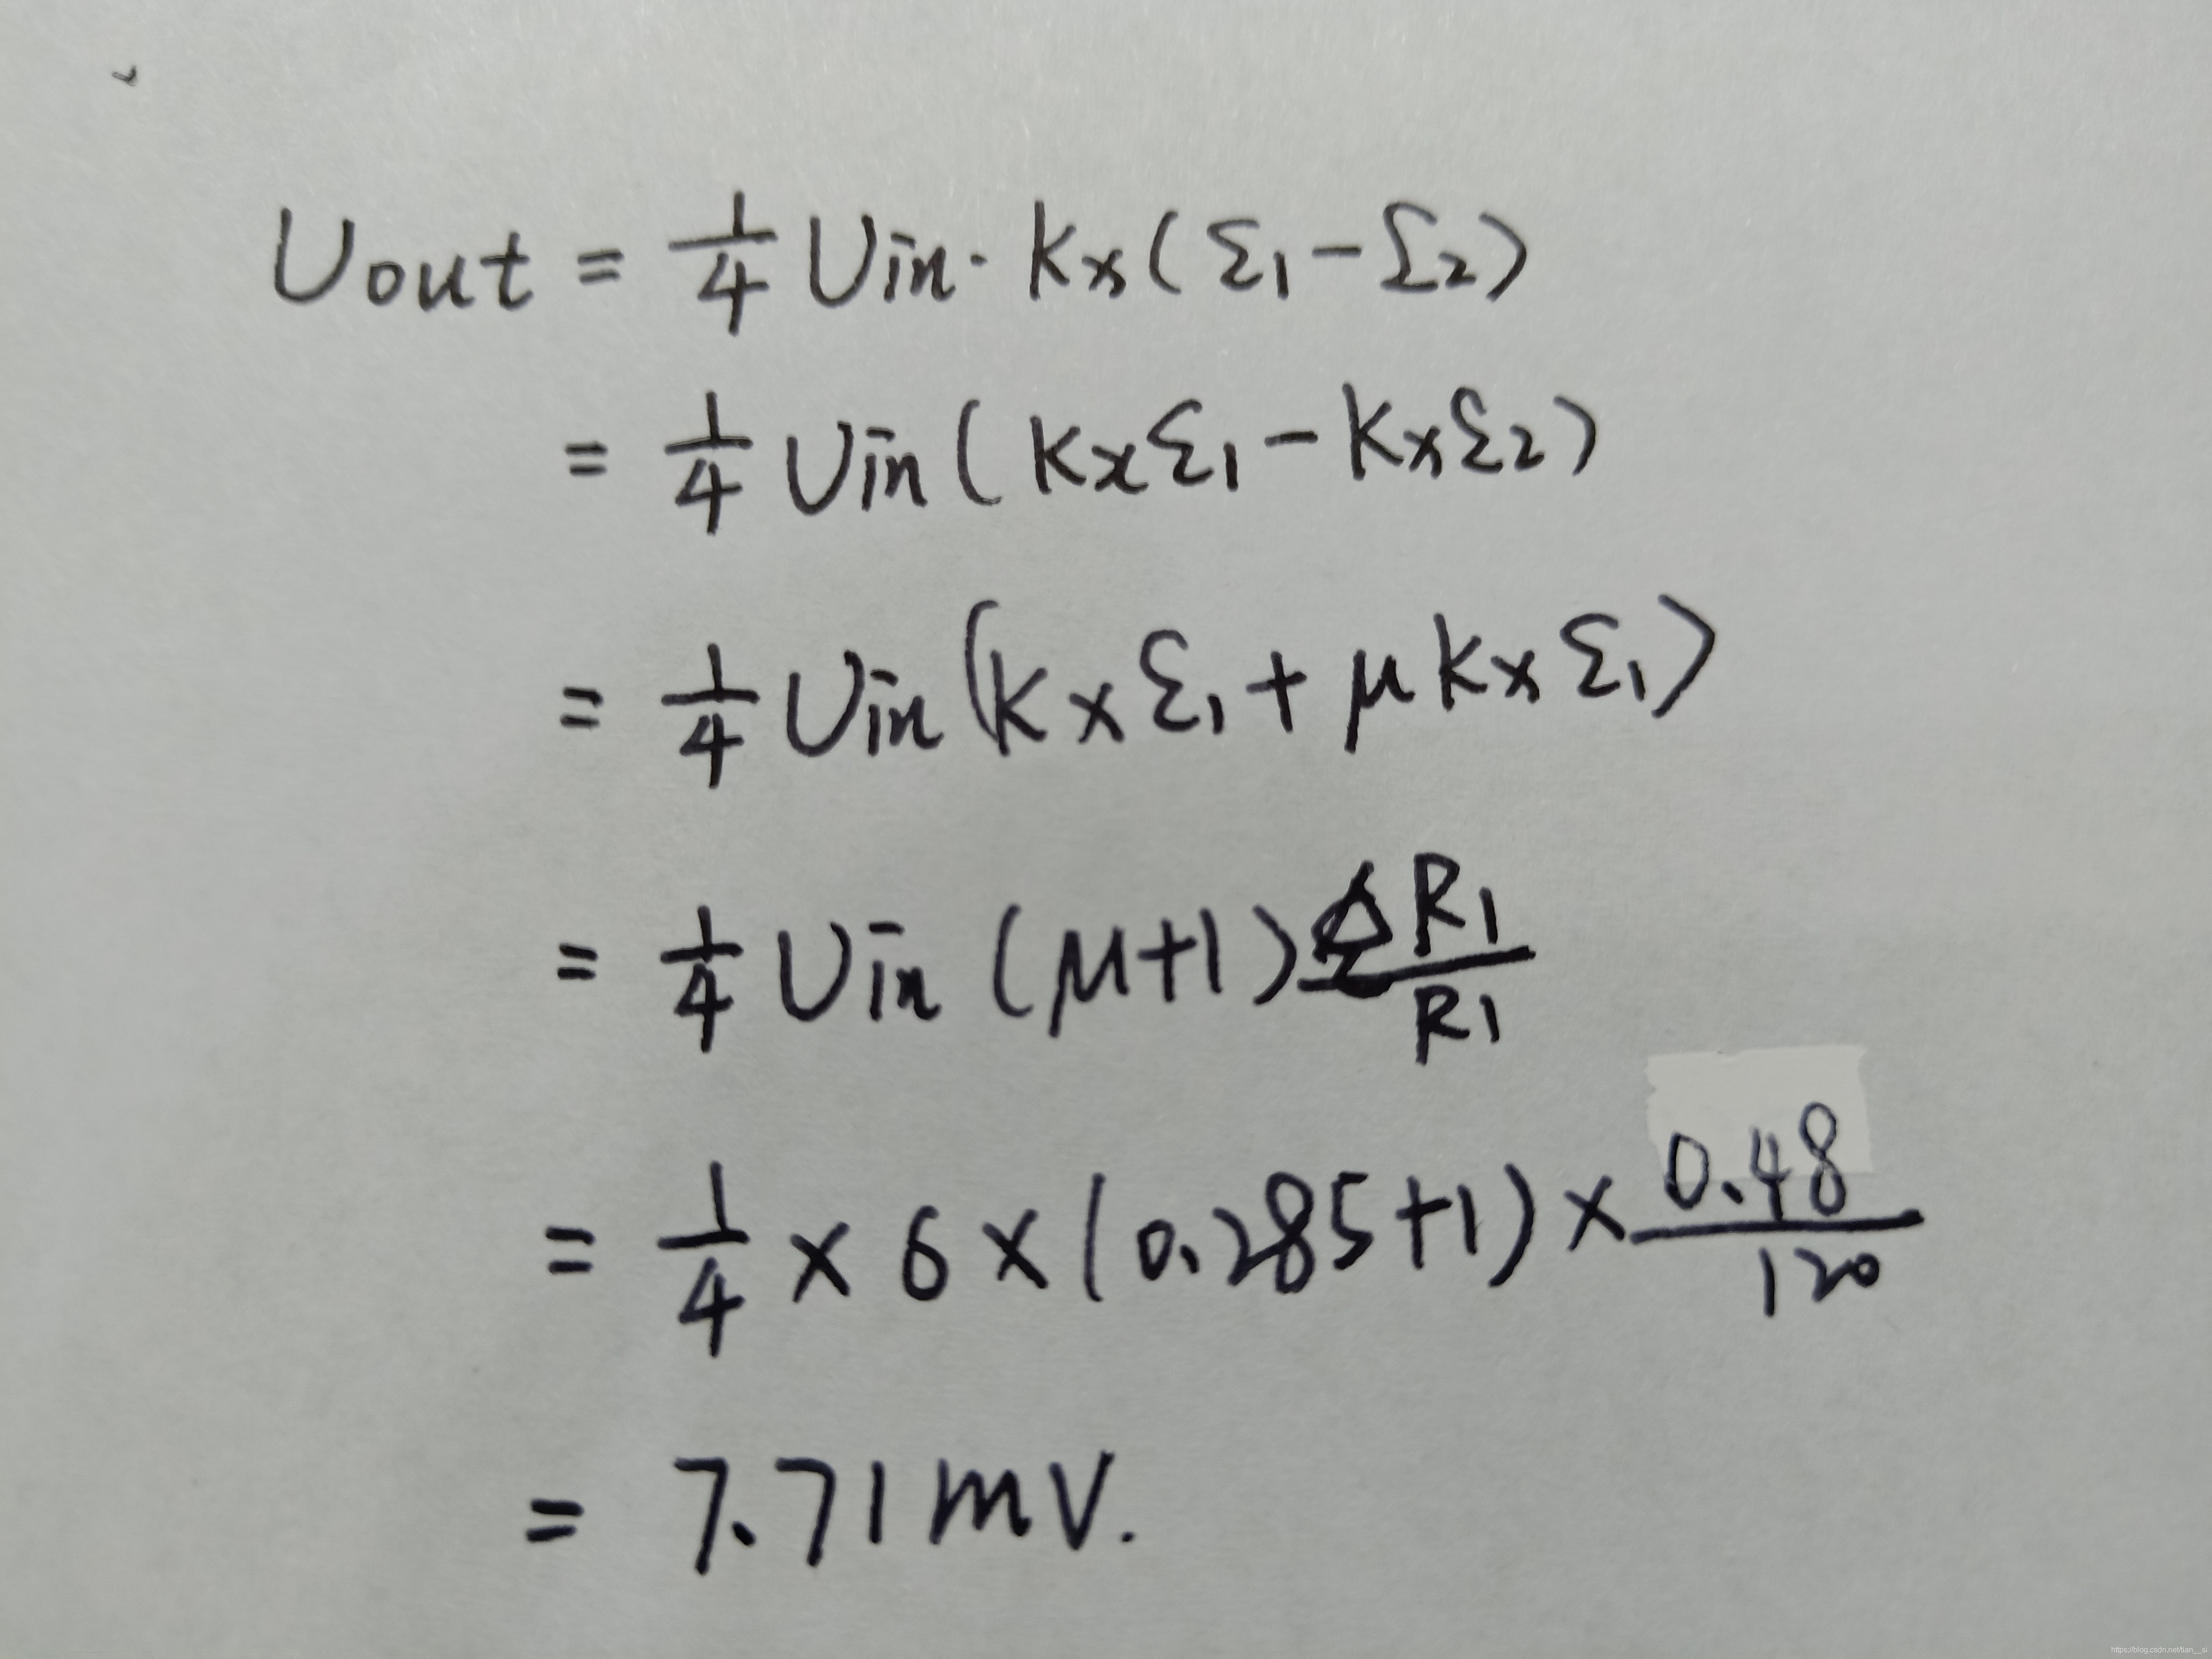 Uout = 1/4 Uin · Kx(ε1 - ε2)
= 1/4 Uin (Kxε1 - Kxε2)
= 1/4 Uin (Kxε1 + μKxε1)
= 1/4 Uin (μ+1) ΔR1/R1
= 1/4 × 6 × (0.285+1) × 0.48/120
= 7.71mV.
https://blog.csdn.net/tian__si